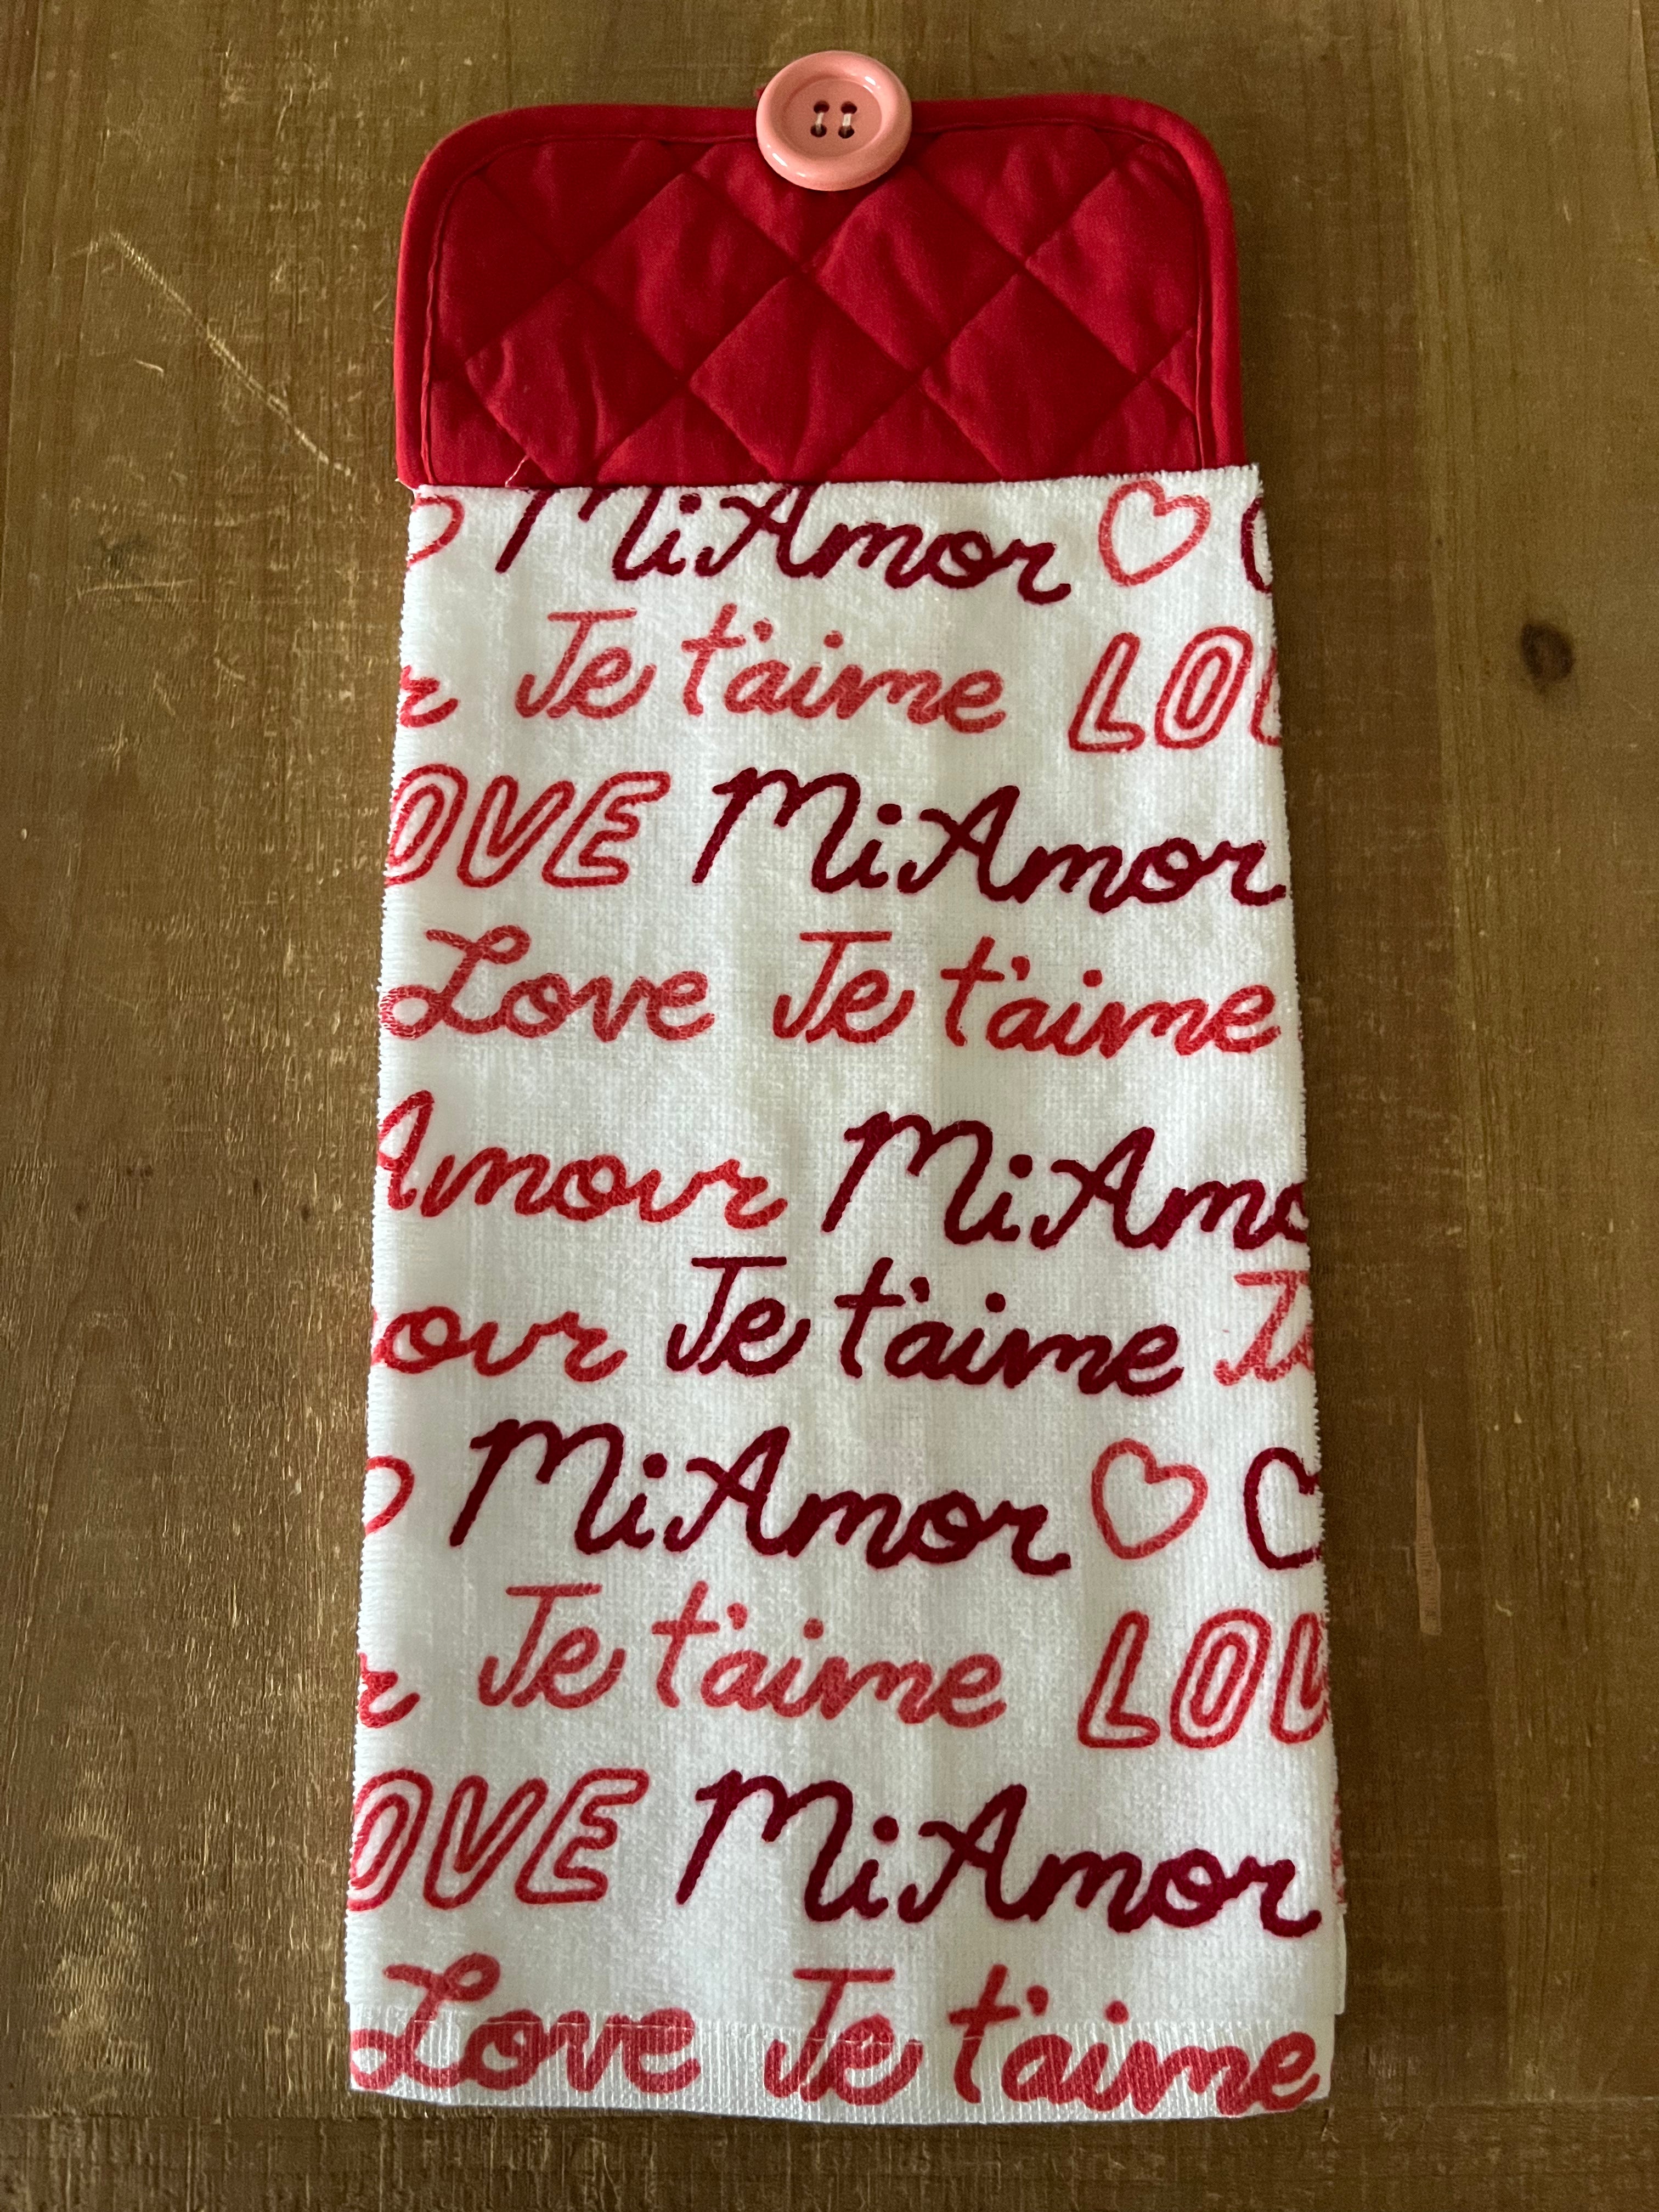 Mi Amor
Je t'aime LOV
OVE Mi Amor
Love Je t'aime
Amour Mi Amo
our Je t'aime
Mi Amor
r Je t'aime LOV
OVE Mi Amor
Love Je t'aime